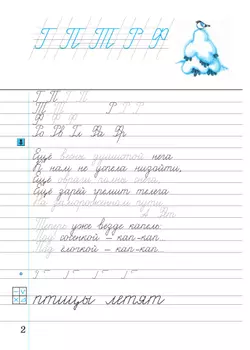 Г П Т Р Ф
Г П Г П
Т Т Р Р Р
Ф Ф Ф
Ещё весны душистой нега
К нам не успела низойти,
Ещё овраги полны снега,
Ещё зарёй гремит телега
На замороженном пути.
А. Фет
Теперь уже везде капель:
Под сосенкой – кап-кап...
Под ёлочкой – кап-кап...
птицы летят
2